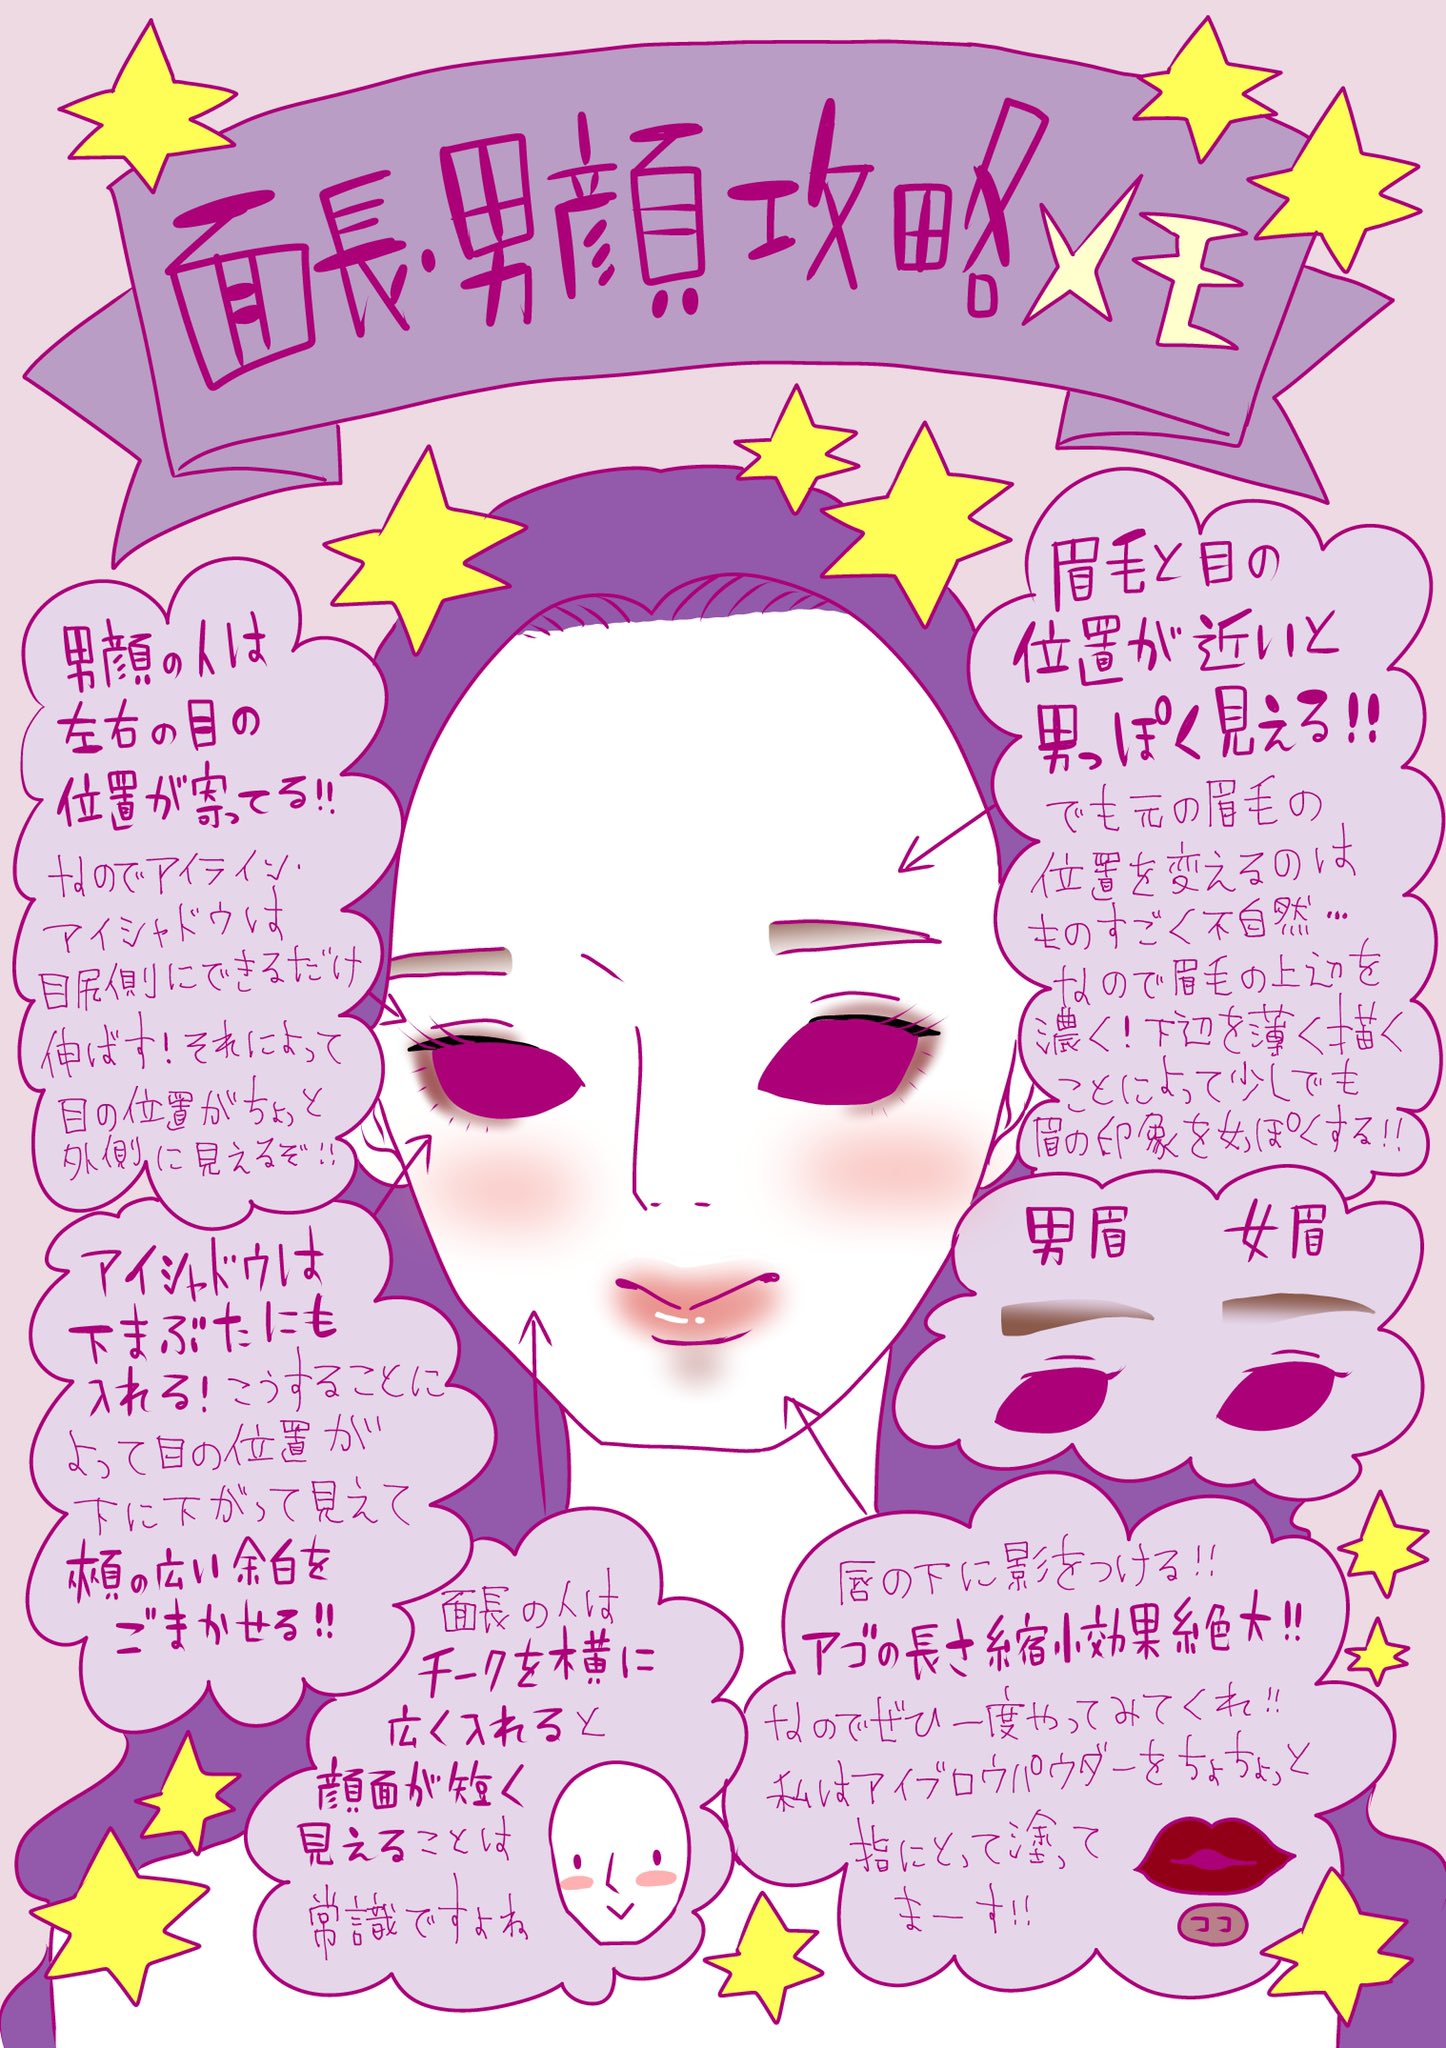 面長・男顔攻略メモ
男顔の人は
左右の目の
位置が寄ってる!!
なのでアイライン・
アイシャドウは
目尻側にできるだけ
伸ばす!それによって
目の位置がちょっと
外側に見えるぞ!!
眉毛と目の
位置が近いと
男っぽく見える!!
でも元の眉毛の
位置を変えるのは
ものすごく不自然…
なので眉毛の上辺を
濃く!下辺を薄く描く
ことによって少しでも
眉の印象を女っぽくする!!
男眉 女眉
アイシャドウは
下まぶたにも
入れる!こうすることに
よって目の位置が
下に下がって見えて
頬の広い余白を
ごまかせる!!
面長の人は
チークを横に
広く入れると
顔面が短く
見えることは
常識ですよね
唇の下に影をつける!!
アゴの長さ縮小効果絶大!!
なのでぜひ一度やってみてくれ!!
私はアイブロウパウダーをちょちょっと
指にとって塗って
まーす!!
ココ